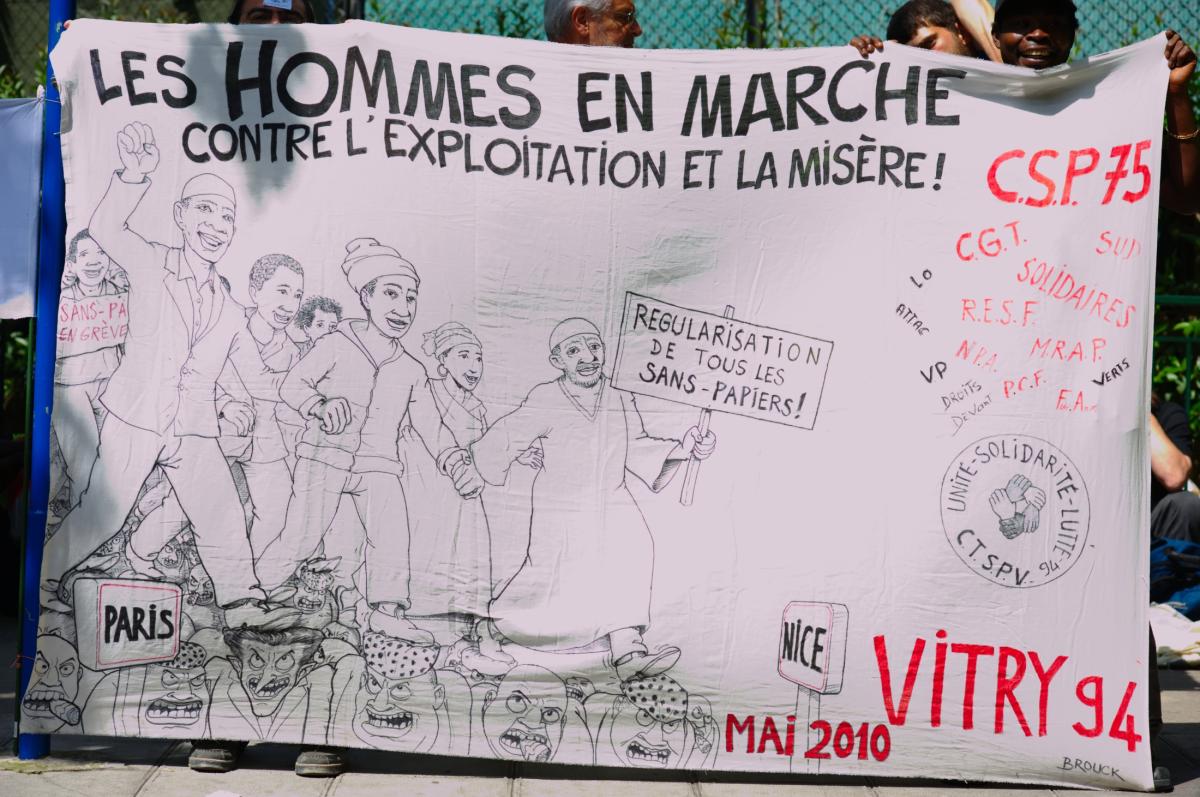 LES HOMMES EN MARCHE
CONTRE L'EXPLOITATION ET LA MISÈRE!
C.S.P. 75
C.G.T. SUD
SOLIDAIRES
LO
ATTAC
R.E.S.F.
N.P.A. M.R.A.P.
VP
P.C.F. VERTS
DROITS
DEVANT
SANS-PA
EN GRÈVE
REGULARISATION
DE TOUS LES
SANS-PAPIERS!
UNITÉ-SOLIDARITÉ-LUTTE
C.T.S.P.V. 94
PARIS
NICE
VITRY 94
MAI 2010
BROUCK